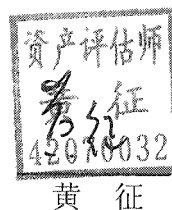 资产评估师
黄征
42070032
黄征